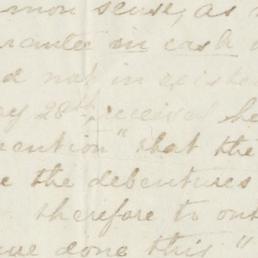 mon sense, as
rantee in cash
d not in existe
ay 28th, received he
ention" that the
e the debentures
therefore to
ave done this "